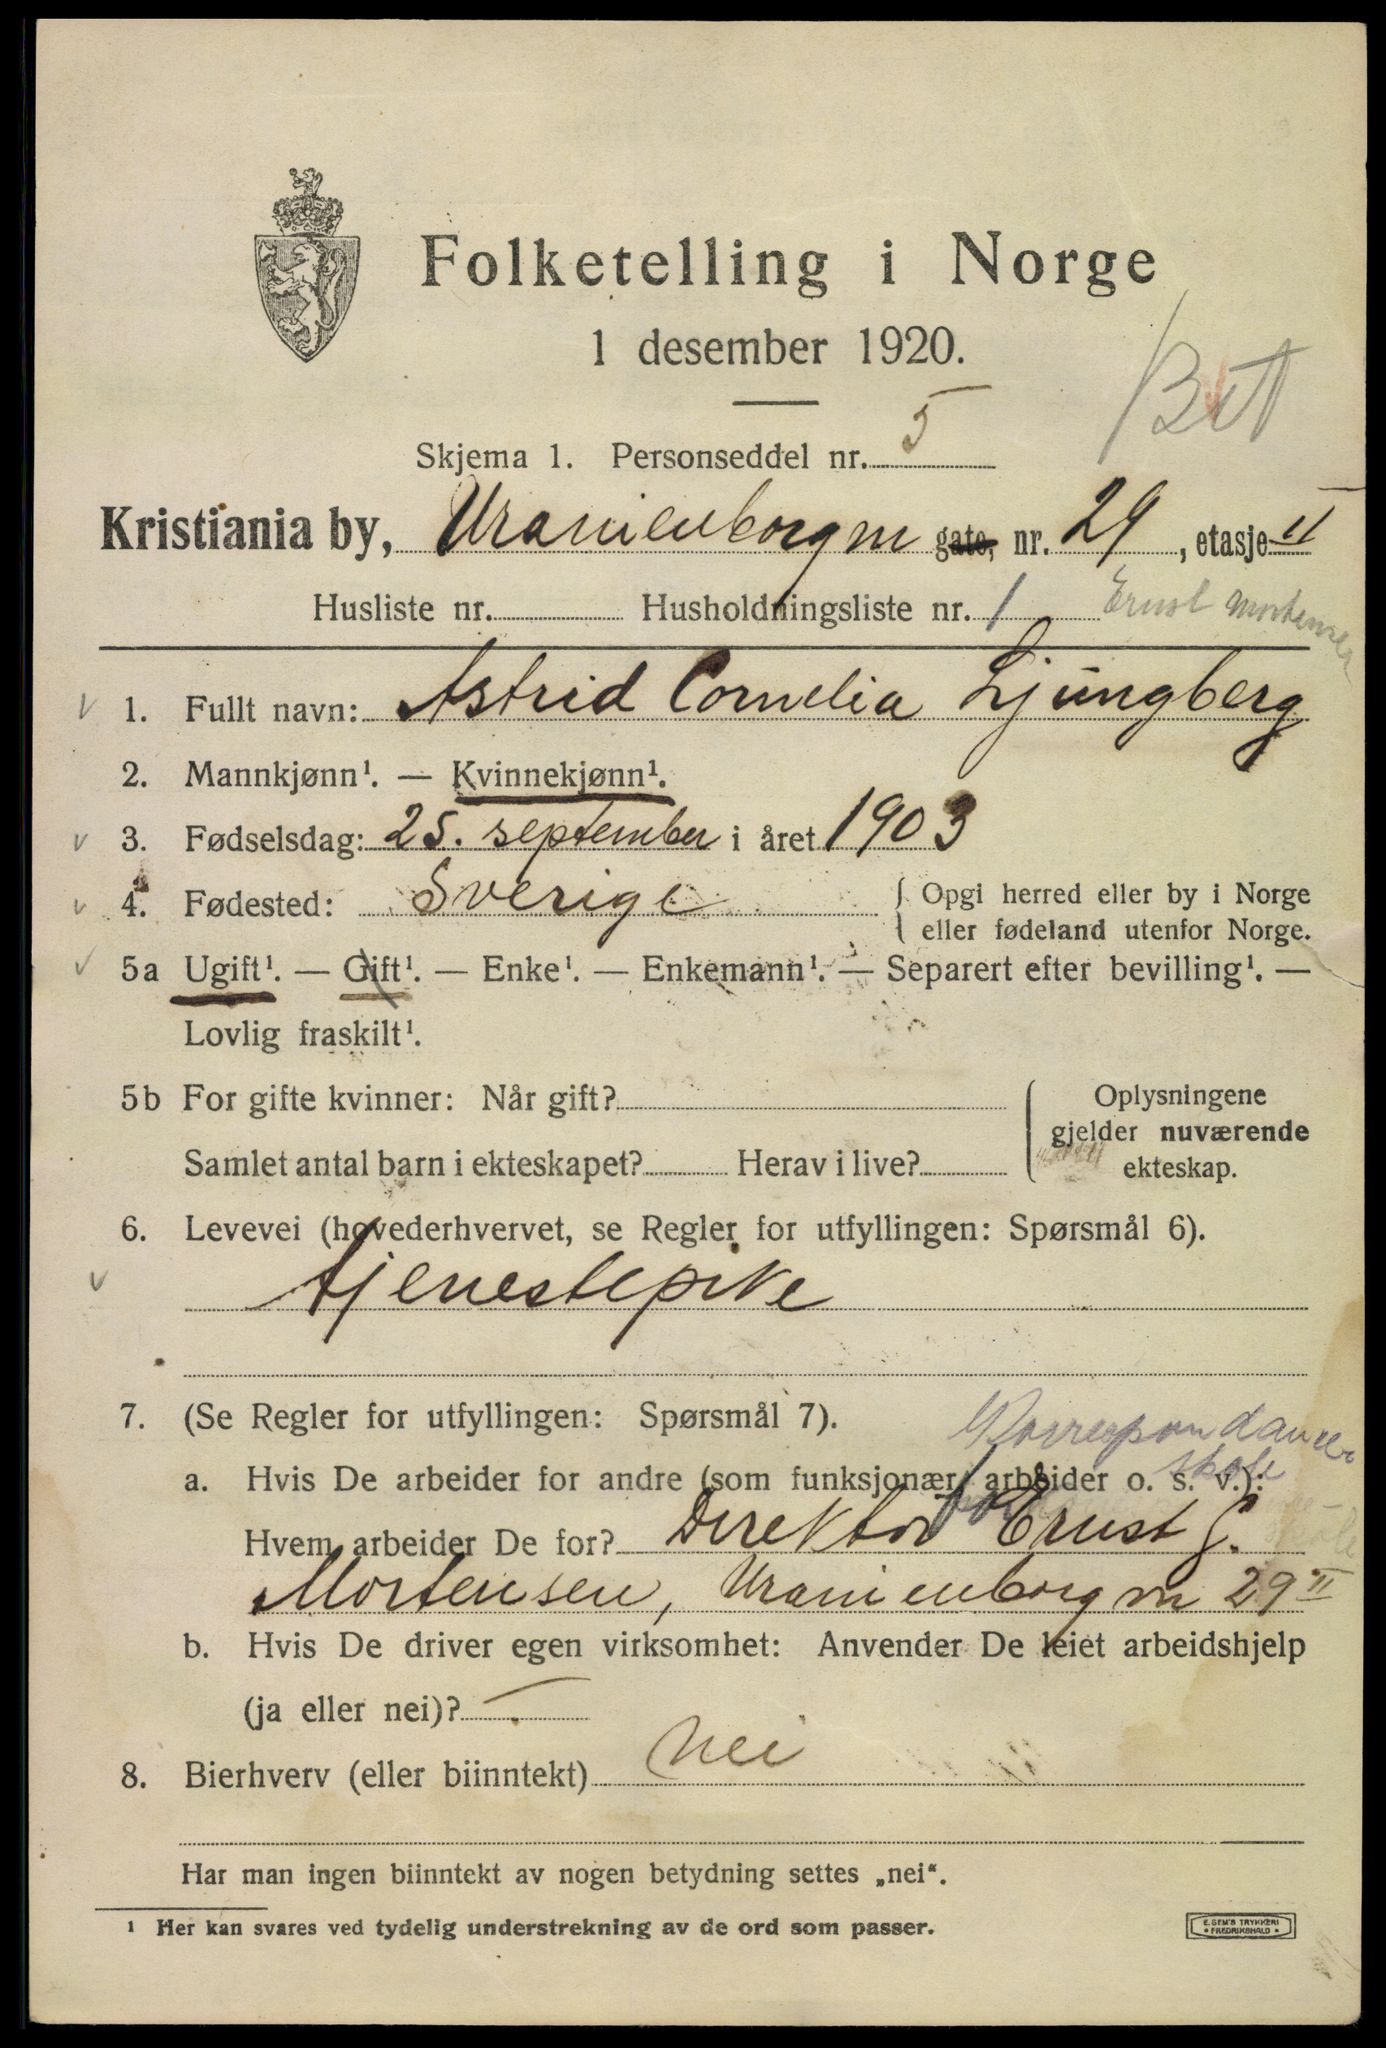 Folketelling i Norge
1 desember 1920.
Skjema 1. Personseddel nr. 5
Kristiania by, Uranienborgvn gate, nr. 29, etasje II
Husliste nr. Husholdningsliste nr. 1 Ernst Mortensen
1. Fullt navn: Astrid Cornelia Ljungberg
2. Mannkjønn¹. — Kvinnekjønn¹.
3. Fødselsdag: 25. september i året 1903
4. Fødested: Sverige { Opgi herred eller by i Norge
{ eller fødeland utenfor Norge.
5a Ugift¹. — Gift¹. — Enke¹. — Enkemann¹. — Separert efter bevilling¹. —
Lovlig fraskilt¹.
5b For gifte kvinner: Når gift? Oplysningene
gjelder nuværende
Samlet antal barn i ekteskapet? Herav i live? ekteskap.
6. Levevei (hovederhvervet, se Regler for utfyllingen: Spørsmål 6).
tjenestepike
7. (Se Regler for utfyllingen: Spørsmål 7).
skole
a. Hvis De arbeider for andre (som funksjonær, arbeider o. s. v.):
Hvem arbeider De for? Direktør Ernst G.
Mortensen, Uranienborgvn 29 II
b. Hvis De driver egen virksomhet: Anvender De leiet arbeidshjelp
(ja eller nei)? —
8. Bierhverv (eller biinntekt) Nei
Har man ingen biinntekt av nogen betydning settes „nei“.
¹ Her kan svares ved tydelig understrekning av de ord som passer.
E. SEM'S TRYKKERI
• FREDRIKSHALD •